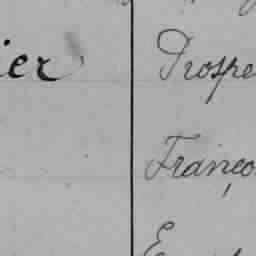 ier Prospe
Franço
E